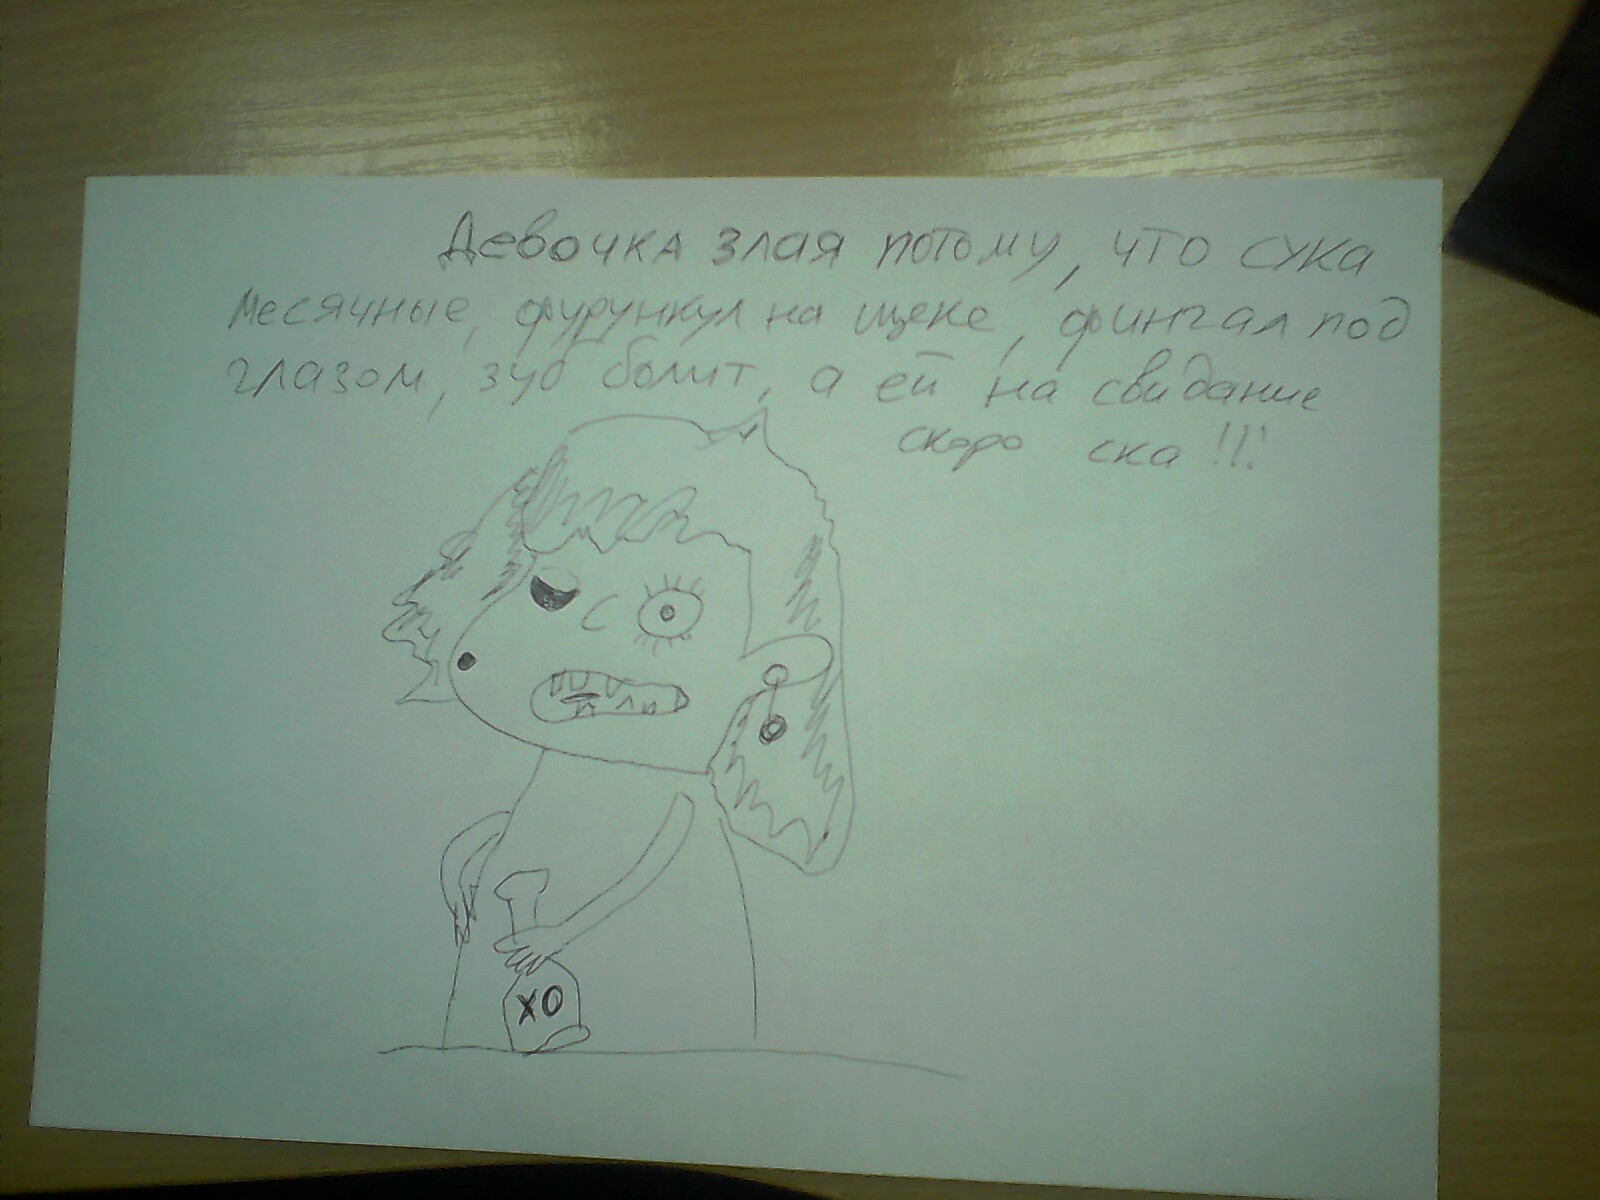 Девочка злая потому, что сука
месячные, фурункул на щеке, фингал под
глазом, зуб болит, а ей на свидание
скоро ска!!!
XO